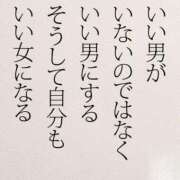 いい男が
いないのではなく
いい男にする
そうして自分も
いい女になる